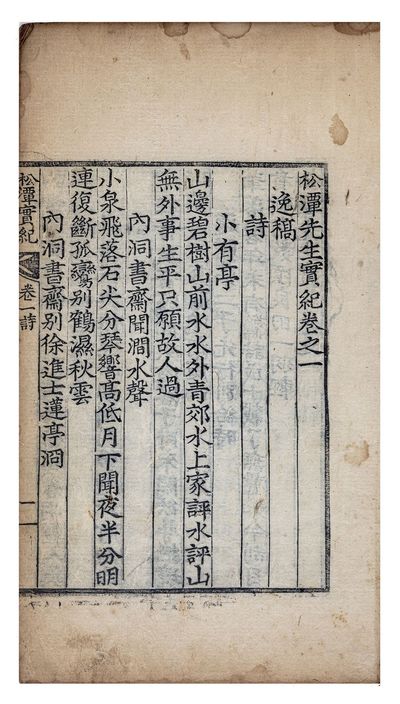 松潭先生實紀卷之一
逸稿
詩
小有亭
山邊碧樹山前水水外青郊水上家評水評山
無外事生平只願故人過
內洞書齋聞澗水聲
小泉飛落石尖分琴響高低月下聞夜半分明
連復斷孤鸞別鶴濕秋雲
內洞書齋別徐進士蓮亭澗
松潭實紀 卷一 詩 一